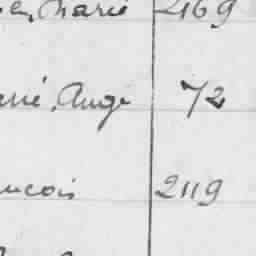 Marie 2169
Ange 72
ncois 2119